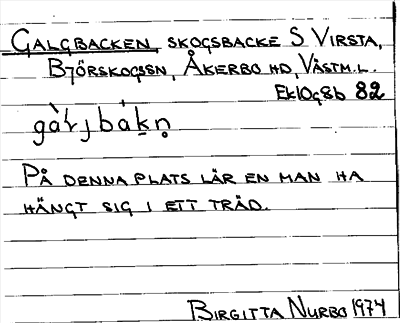 GALGBACKEN, SKOGSBACKE S VIRSTA,
BJÖRSKOGSSN, ÅKERBO HD, VÄSTM.L.
Ek10g8b 82
gàrj bákn̥
PÅ DENNA PLATS LÄR EN MAN HA
HÄNGT SIG I ETT TRÄD.
BIRGITTA NURBO 1974